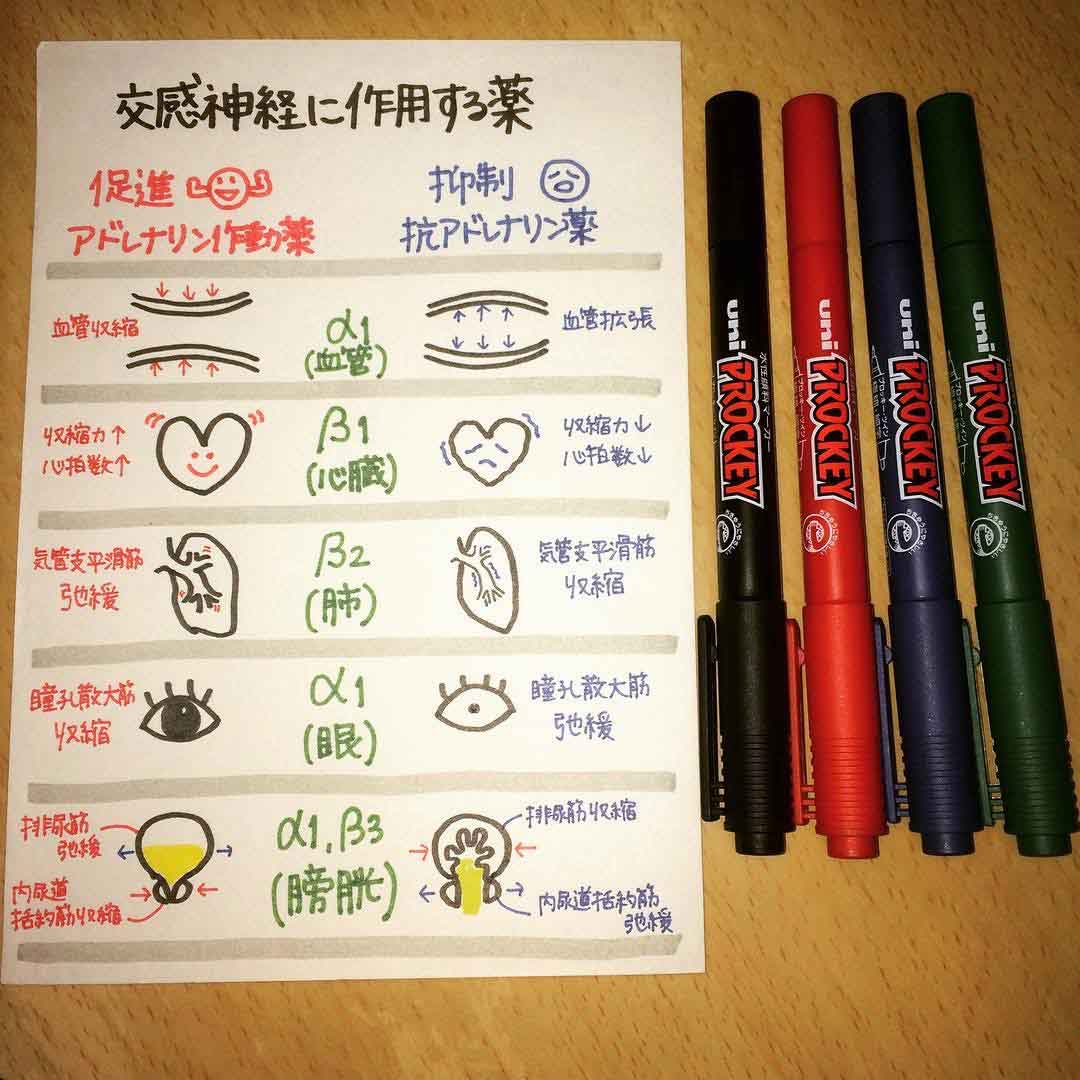 交感神経に作用する薬
促進
抑制
アドレナリン作動薬
抗アドレナリン薬
血管収縮
α1
(血管)
血管拡張
収縮力↑
心拍数↑
β1
(心臓)
収縮力↓
心拍数↓
気管支平滑筋
弛緩
β2
(肺)
気管支平滑筋
収縮
瞳孔散大筋
収縮
α1
(眼)
瞳孔散大筋
弛緩
排尿筋
弛緩
内尿道
括約筋収縮
α1, β3
(膀胱)
排尿筋収縮
内尿道括約筋
弛緩
uni PROCKEY
水性顔料マーカー
uni PROCKEY
uni PROCKEY
uni PROCKEY